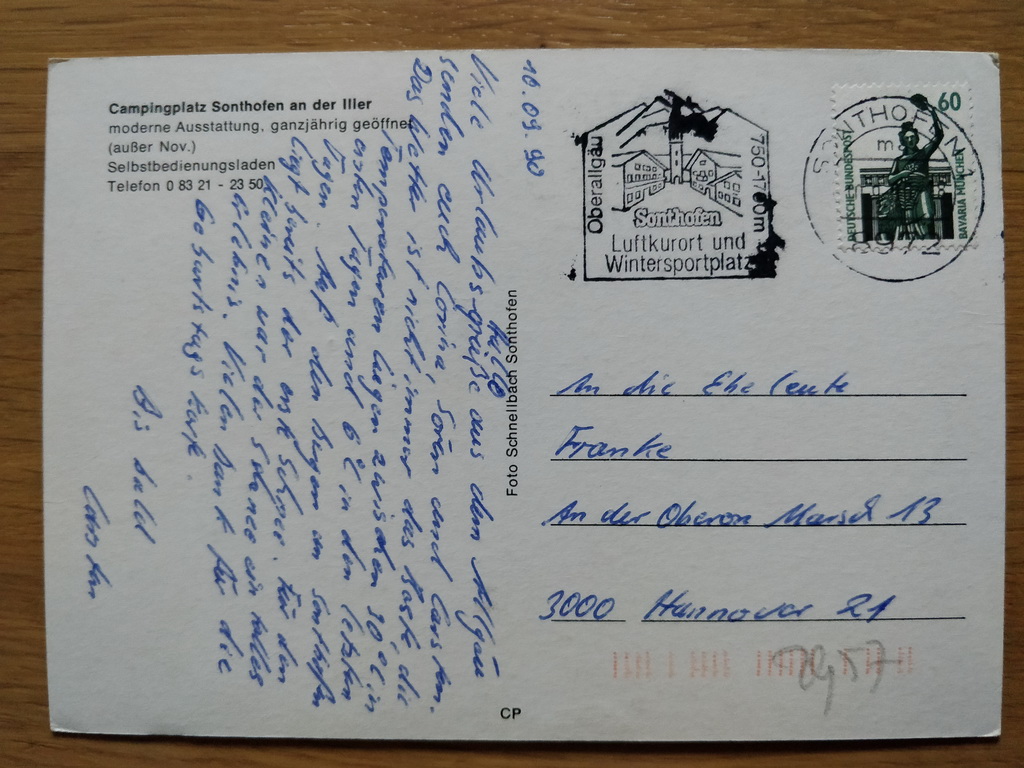 Campingplatz Sonthofen an der Iller
moderne Ausstattung, ganzjährig geöffnet
(außer Nov.)
Selbstbedienungsladen
Telefon 0 83 21 - 23 50
10.09.90
Hallo
Viele Urlaubsgrüße aus dem Allgäu
senden euch Corina, Sören und Carsten.
Das Wetter ist nicht immer das beste, die
Temperaturen liegen zwischen 30°C in
ersten Tagen und 6°C in den letzten
Tagen. Auf den Bergen um Sonthofen
liegt bereits der erste Schnee. Für den
kleinen war der Schnee ein tolles
Erlebnis. Vielen Dank für die
Geburtstagskarte.
Bis bald
Carsten
Foto Schnellbach Sonthofen
CP
Oberallgäu
750-1700m
Sonthofen
Luftkurort und
Wintersportplatz
SONTHOFEN 1
m
8972
60
DEUTSCHE BUNDESPOST
BAVARIA MÜNCHEN
An die Eheleute
Franke
An der Oberen Marsch 13
3000 Hannover 21
2957